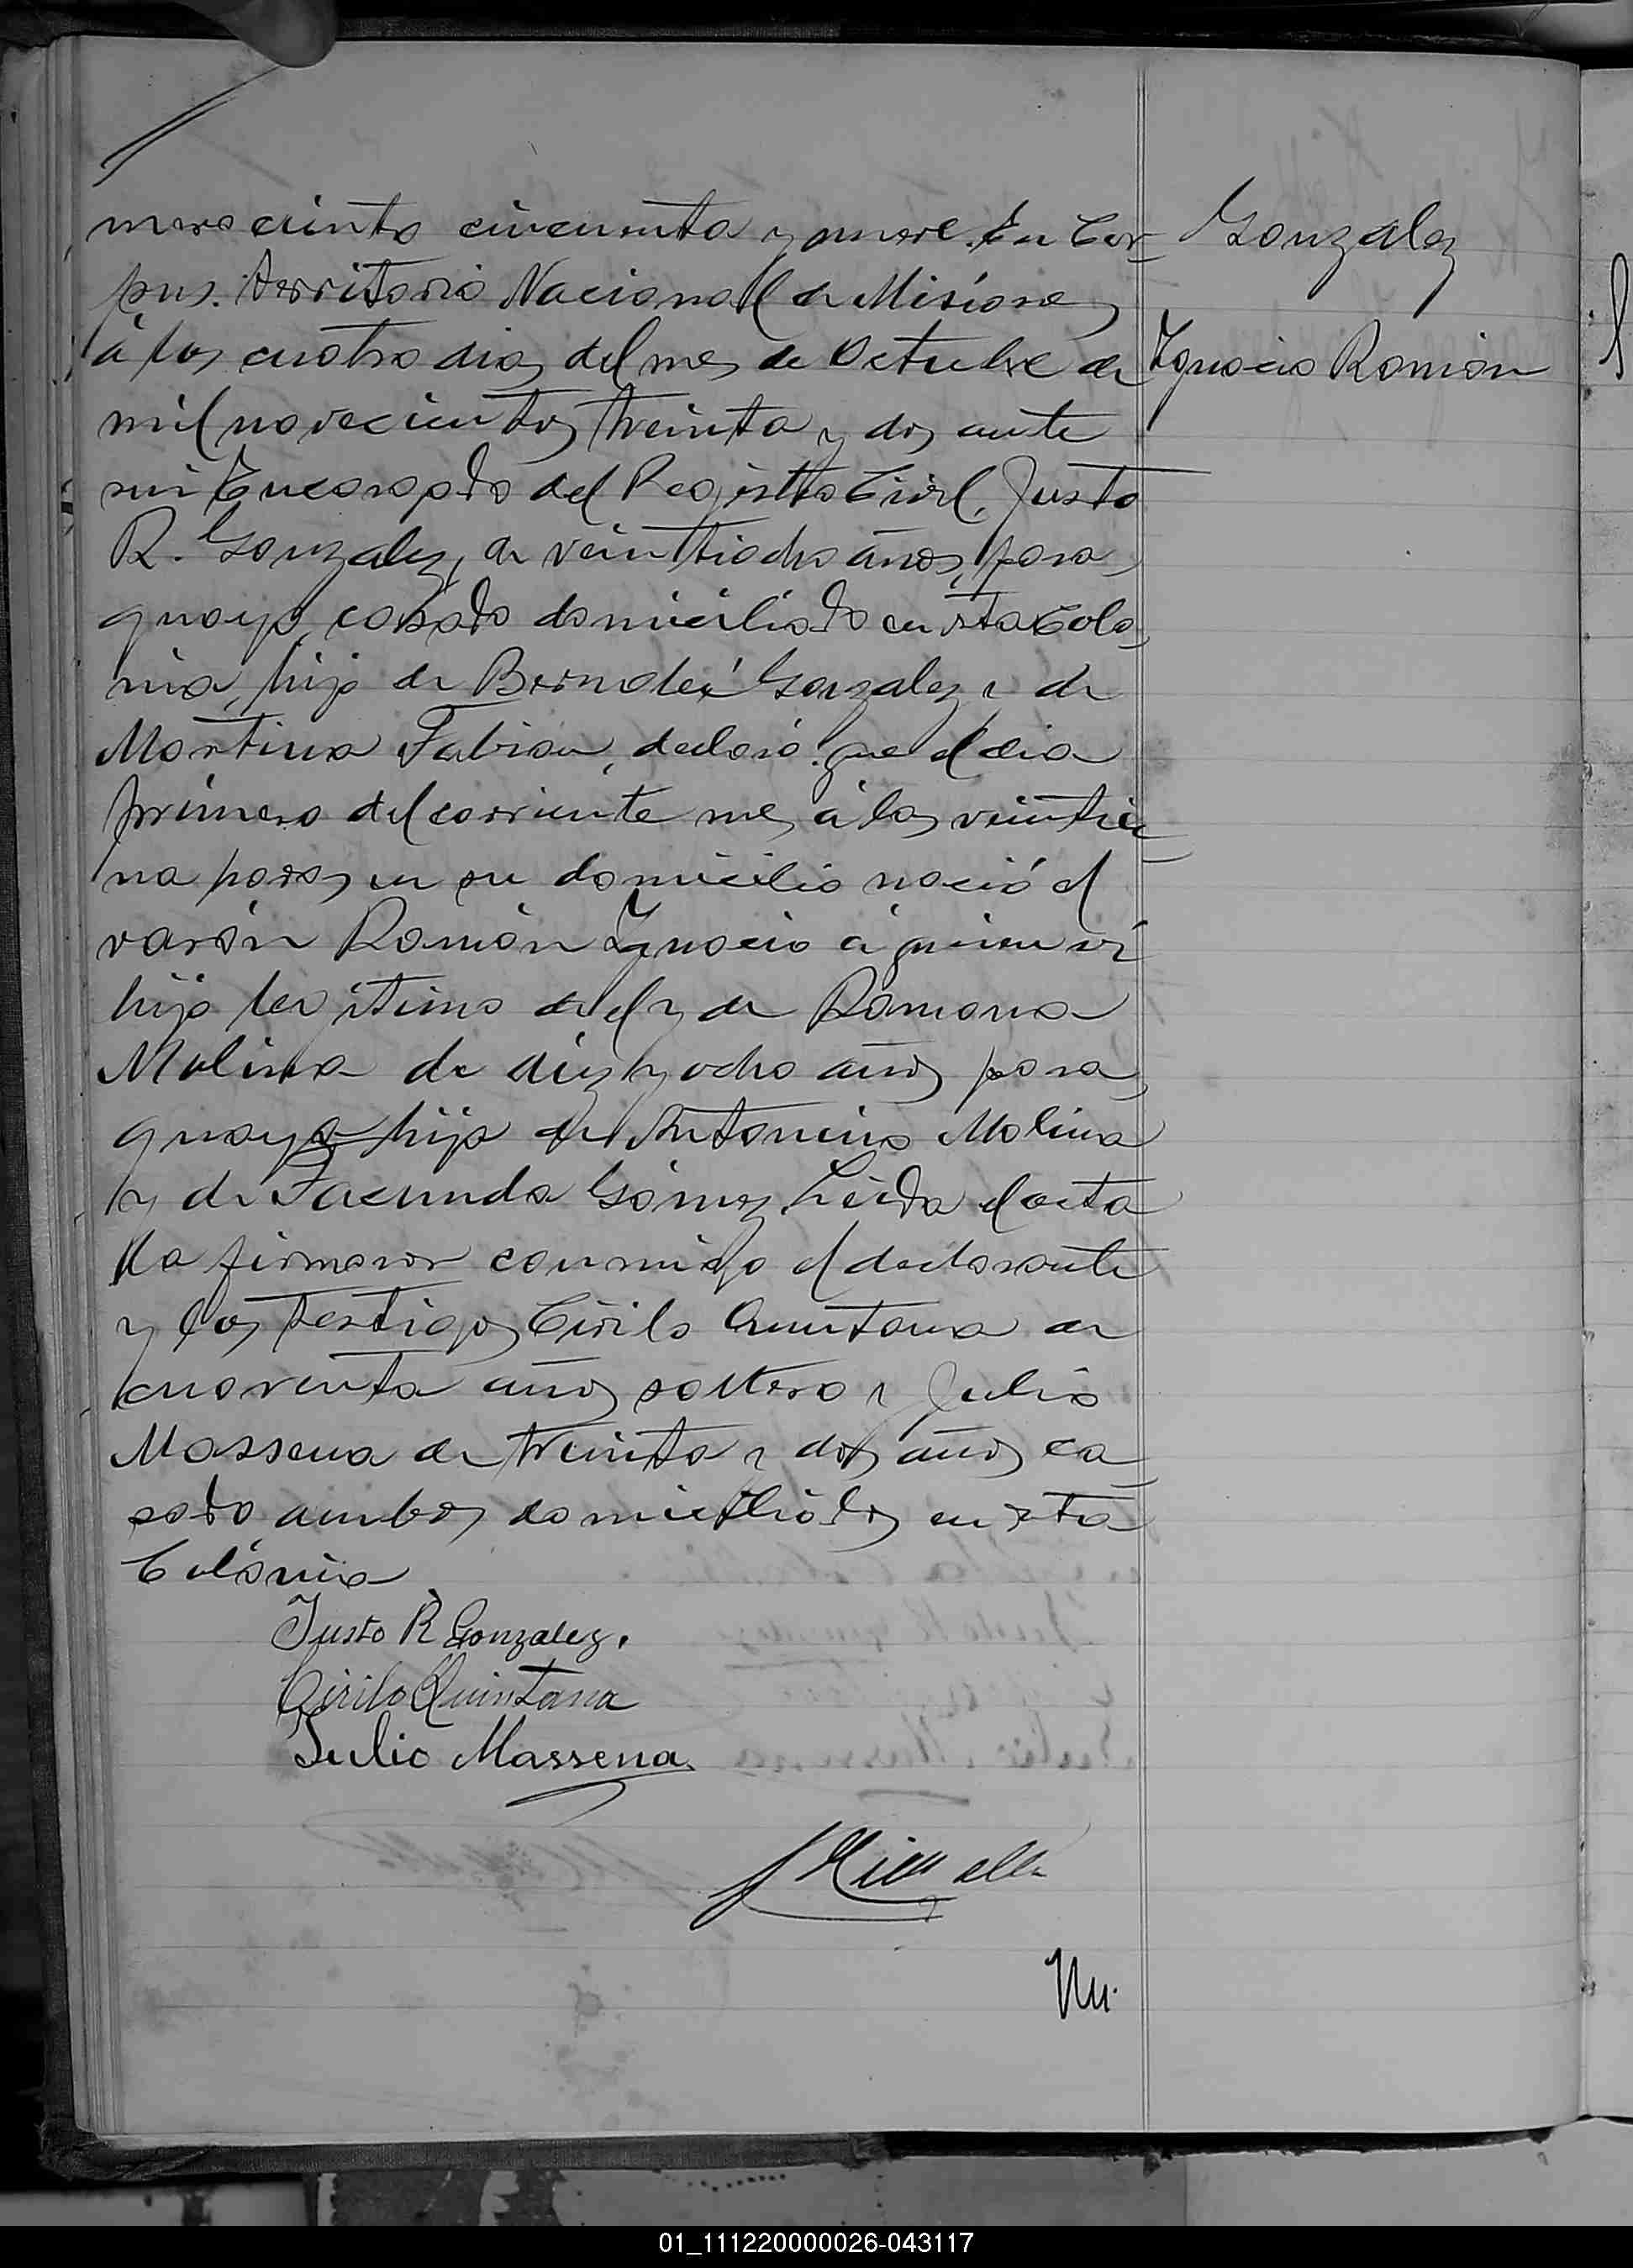 mero ciento cincuenta y nueve. En Cor-
pus. Territorio Nacional de Misiones
á los cuatro dias del mes de Octubre de
mil novecientos treinta y dos ante
mi Encargado del Registro Civil, Justo
R. Gonzalez, de veintiocho años, para
guayo, casado domiciliado en esta Colo
nia, hijo de Bernabé Gonzalez y de
Martina Fabian, declaró: que el dia
primero del corriente mes á las veintiu-
na horas en su domicilio nació el
varón Ramón Ignacio á quien vi
hijo legitimo de el y de Ramona
Molina de diez y ocho años para
guaya hija de Antonino Molina
y de Facunda Gómez Leida el acta
la firmaron conmigo el declarante
y los testigos Cirilo Quintana de
cuarenta años soltero y Julio
Massena de treinta y dos años ca
sado ambos domiciliados en esta
Colónia
Justo R Gonzalez.
Cirilo Quintana
Julio Massena
Nu-
Gonzalez
Ignacio Ramón
01_111220000026-043117